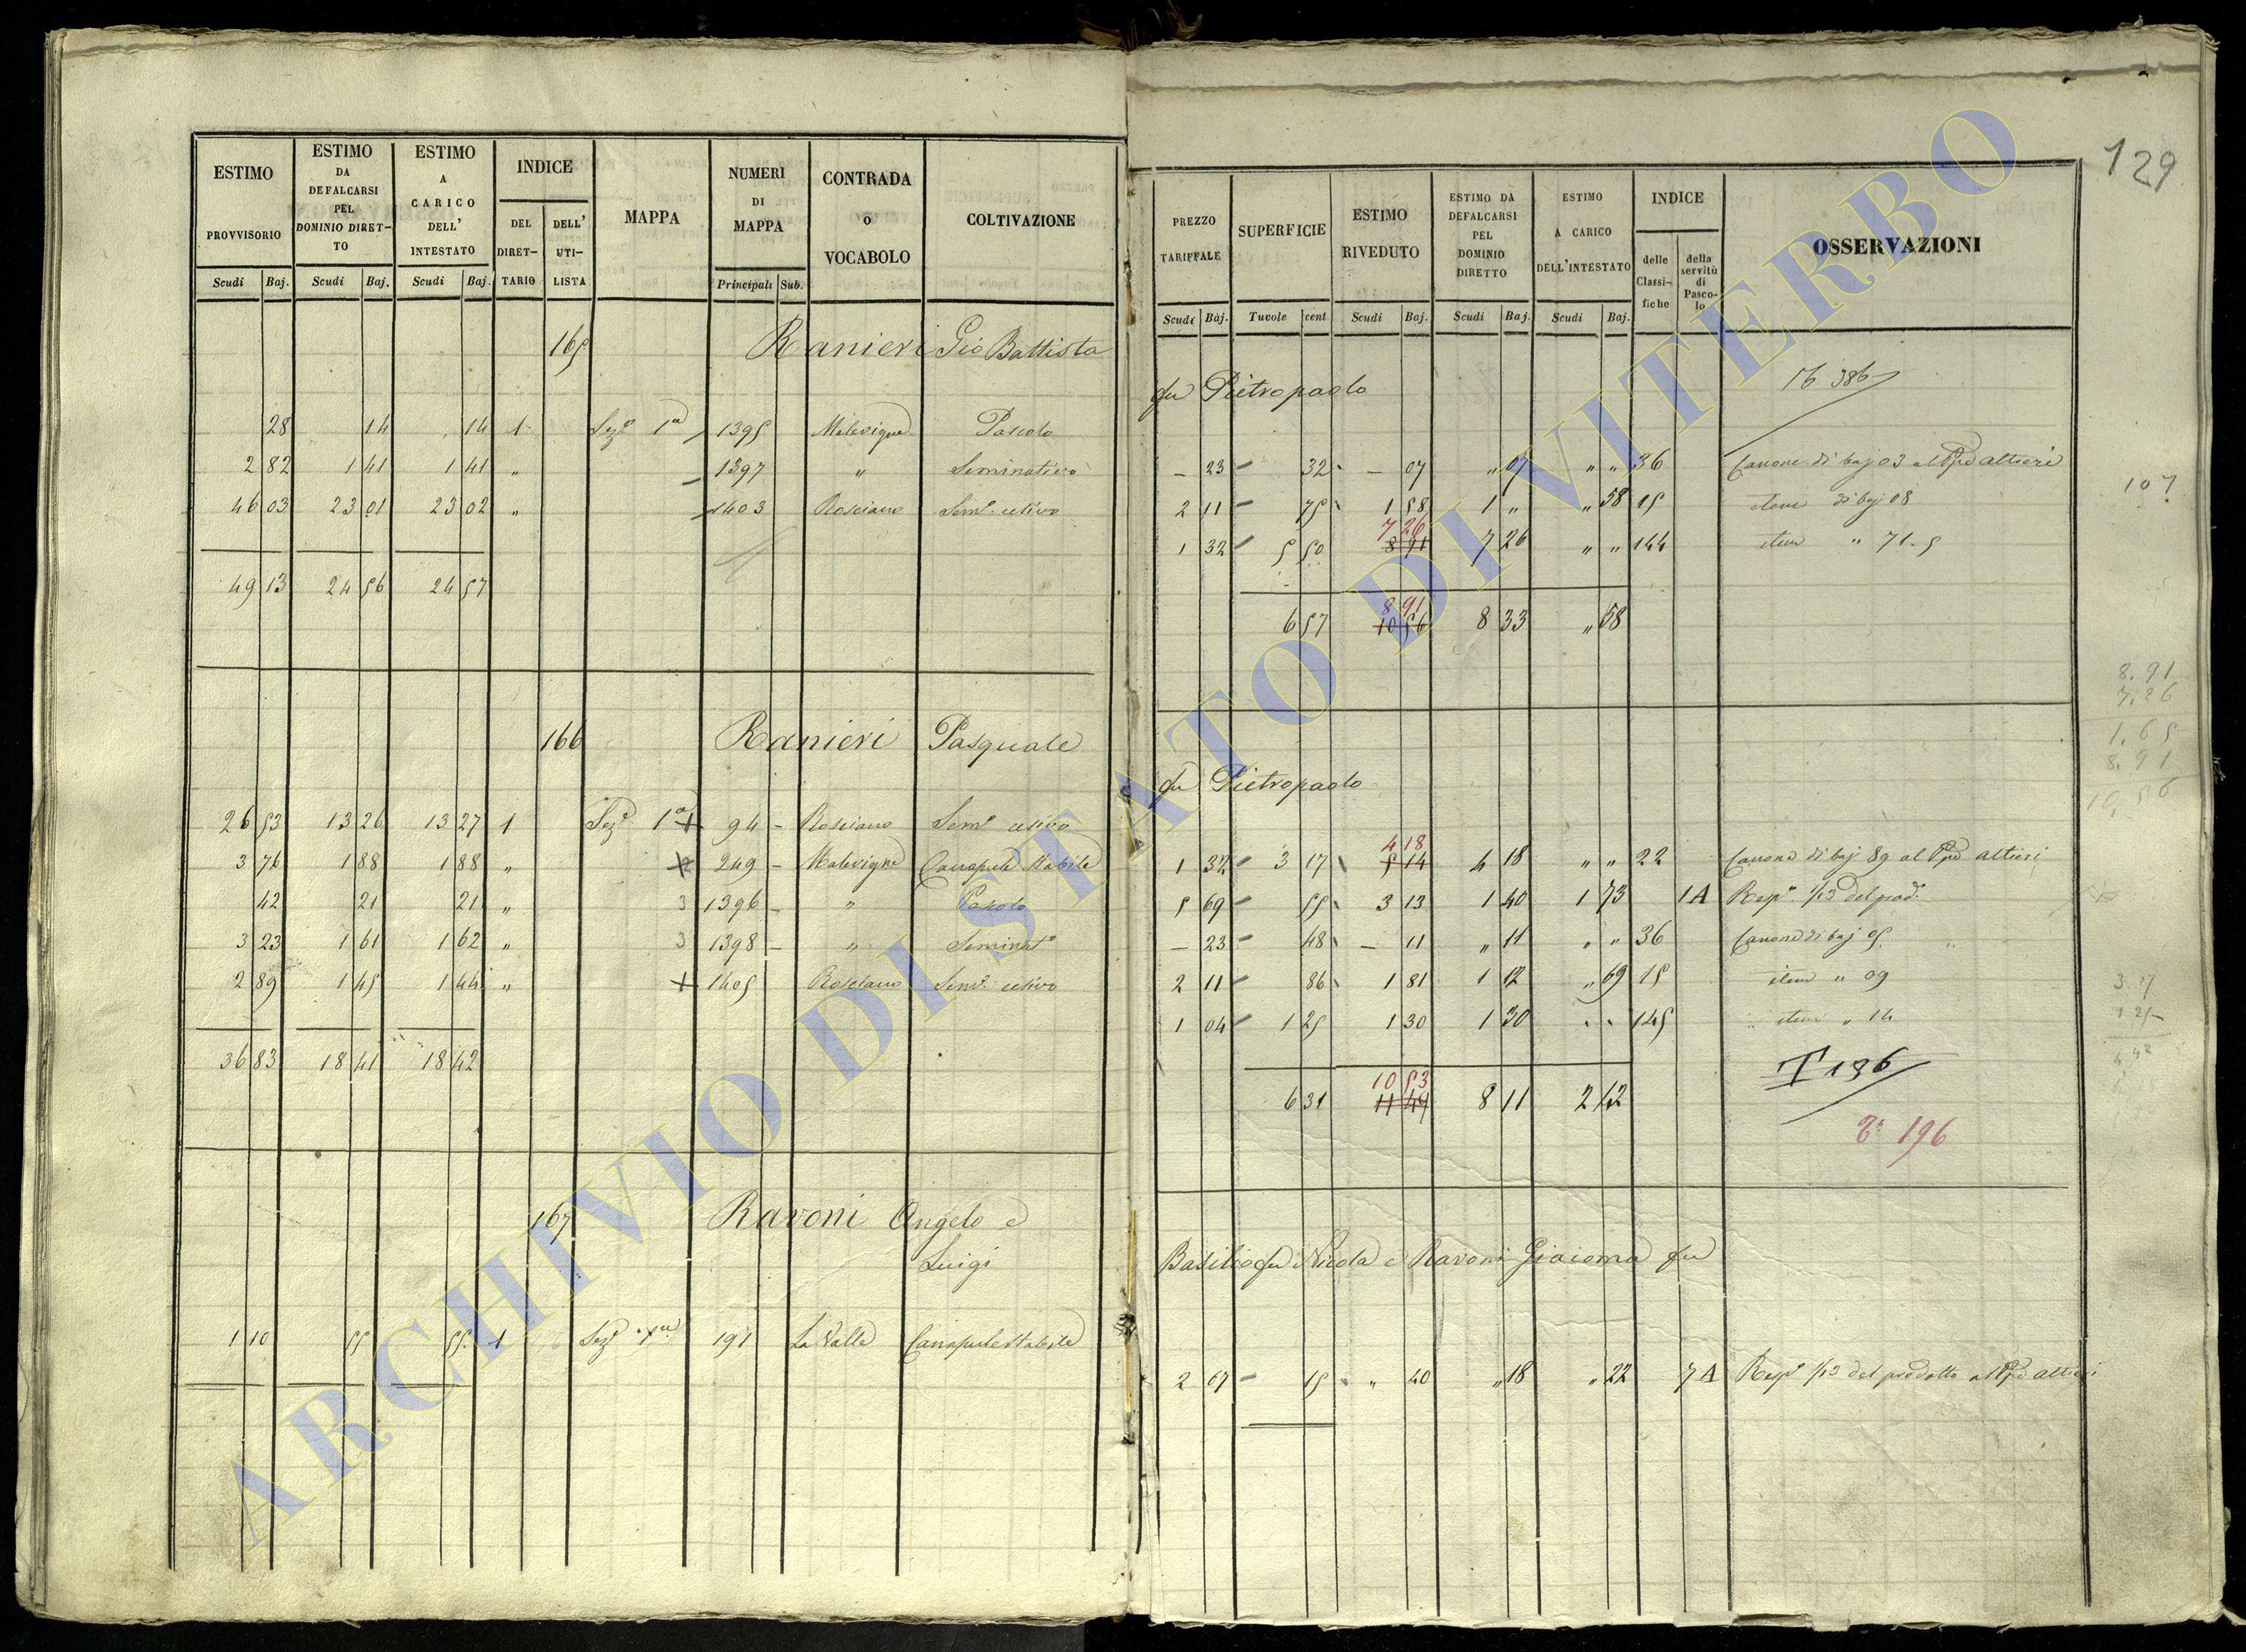 129
ESTIMO PROVVISORIO
ESTIMO DA DEFALCARSI PEL DOMINIO DIRET-TO
ESTIMO A CARICO DELL' INTESTATO
INDICE
DEL DIRET-TARIO
DELL' UTI-LISTA
MAPPA
NUMERI DI MAPPA
CONTRADA o VOCABOLO
COLTIVAZIONE
PREZZO TARIFFALE
SUPERFICIE
ESTIMO RIVEDUTO
ESTIMO DA DEFALCARSI PEL DOMINIO DIRETTO
ESTIMO A CARICO DELL'INTESTATO
INDICE
delle Classi-fiche
della servitù di Pasco-lo
OSSERVAZIONI
Scudi Baj. Scudi Baj. Scudi Baj. Principali Sub.
Scudi Baj. Tavole cent. Scudi Baj. Scudi Baj. Scudi Baj.
165 Ranieri Gio Battista
fu Pietropaolo
386
28 14 14 1 Sezº 1ª 1395 Malevigne Pascolo
2 82 1 41 1 41 " 1397 " Seminativo
46 03 23 01 23 02 " 1403 Rosciano Semº olivo
49 13 24 56 24 57
— 23 32 — 07 " 07 " " 36 Canone di baj 03 al Ppe Altieri
2 11 75 1 58 1 " " 58 15 item di baj 08
7 26
1 32 5 50 8 91 7 26 " " 144 item " 71.5
8 91
6 57 10 56 8 33 " 58
107
8.91
7.26
1.65
8.91
10,56
166 Ranieri Pasquale
fu Pietropaolo
26 53 13 26 13 27 1 Sezº 1ª 94 Rosciano Semº olivo
3 76 1 88 1 88 " 249 Malevigne Canapule Stabile
42 21 21 " 3 1396 " Pascolo
3 23 1 61 1 62 " 3 1398 " Seminatº
2 89 1 45 1 44 " 1405 Rosciano Semº olivo
36 83 18 41 18 42
4 18
1 32 3 17 5 14 4 18 " " 22 Canone di baj 89 al Ppe Altieri
5 69 55 3 13 1 40 1 73 1A Rispº 1/13 del prodº
— 23 48 — 11 " 11 " " 36 Canone di baj 05
2 11 86 1 81 1 12 " 69 15 item " 09
1 04 1 25 1 30 1 30 145 item " 14
10 53
6 31 11 49 8 11 2 42
T 136
196
3.17
1 25
4 42
167 Ravoni Angelo e
Luigi
Basilio fu Nicola e Ravoni Giacoma fu
1 10 55 55 1 Sezº 1ª 191 La Valle Canapule Stabile
2 67 15 " 40 " 18 " 22 7A Rispº 1/13 del prodotto al Ppe Altieri
ARCHIVIO DI STATO DI VITERBO